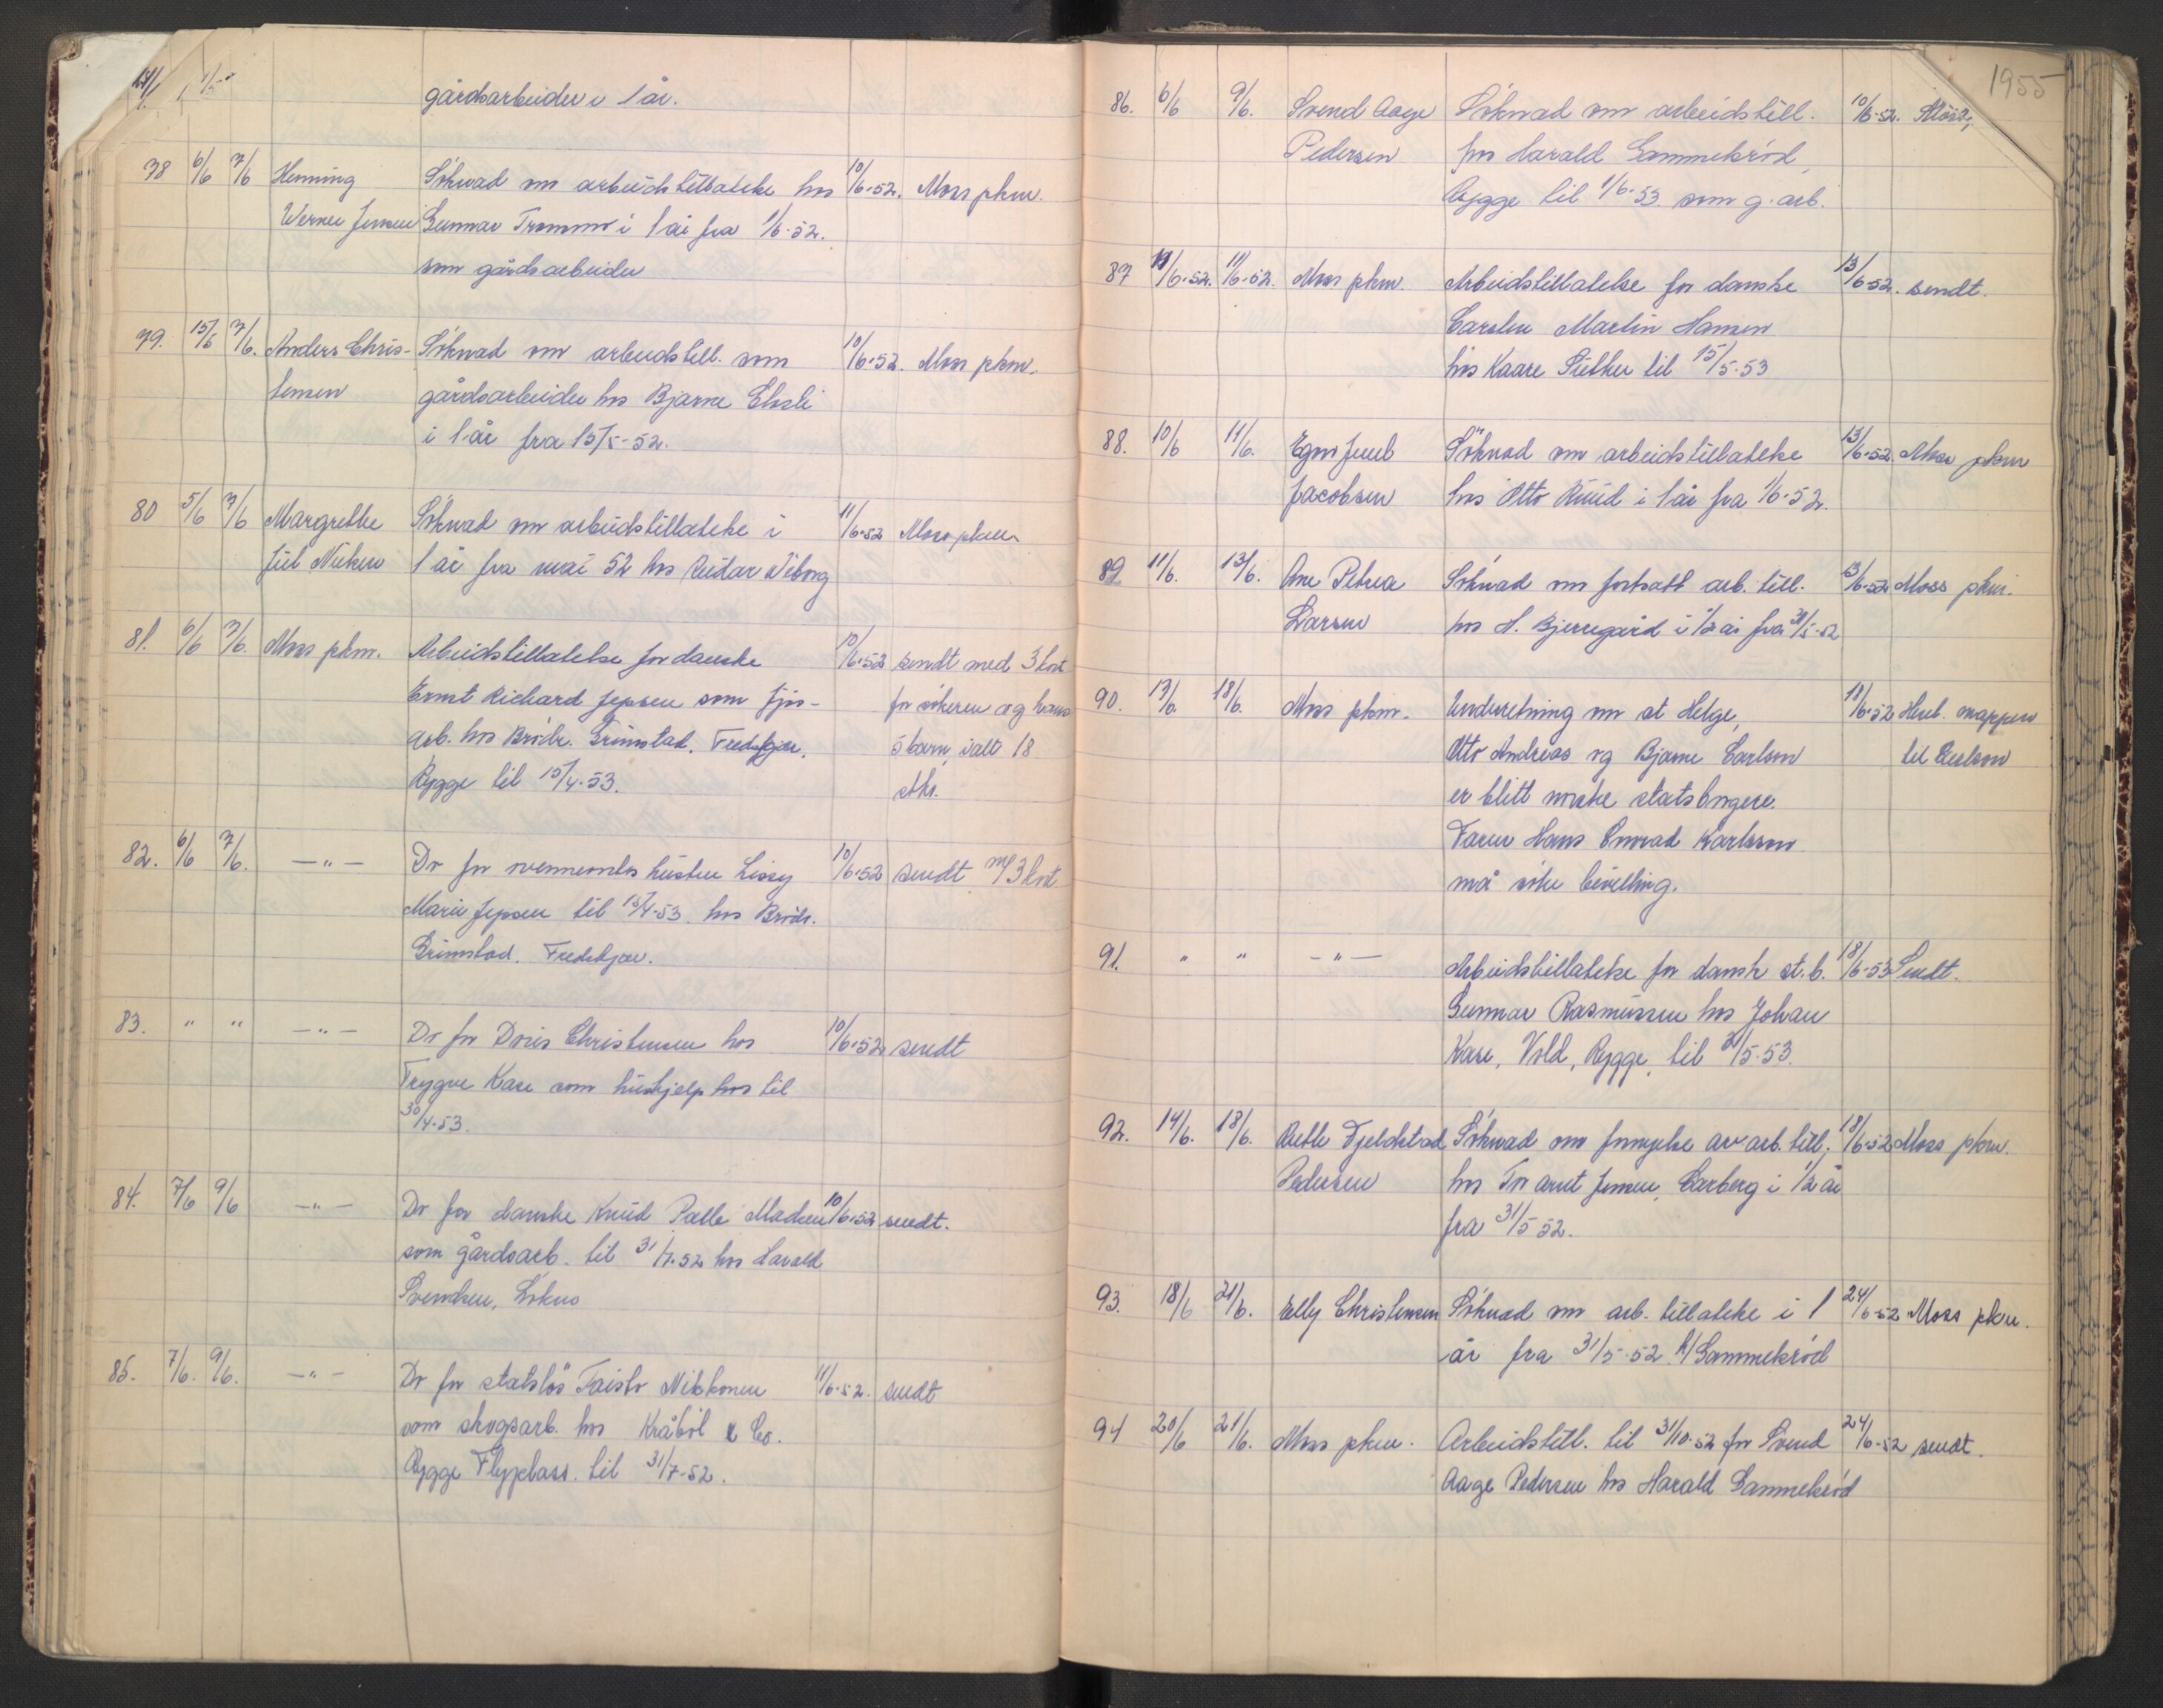 gårdsarbeider i 1 år.
78 6/6 7/6 Henning Söknad om arbeidstillatelse hos 10/6-52. Moss pkm.
Werner Jensen Gunnar i 1 år fra 1/6-52.
som gårdsarbeider
79. 15/5 7/6. Anders Chris- Söknad om arbeidstill. som 10/6-52. Moss pkm.
tensen gårdsarbeider hos Bjarne Eksli
i 1 år fra 15/5-52.
80 5/6 7/6 Margrethe Söknad om arbeidstillatelse i 11/6-52 Moss pkm.
Juel 1 år fra mai 52 hos Reidar Viborg
81. 6/6 7/6. Moss pkm. Arbeidstillatelse for danske 10/6-52 sendt med 3 kort
Ernst Richard Jepsen som fjös- for søkeren og hans
arb. hos Brödr. Grimstad. Fredskjær, 5 barn, ialt 18
Rygge til 15/4-53. stk.
82. 6/6 7/6. —"— Do for ovennevntes hustru Lissy 10/6-52 sendt m/3 kort
Marie Jepsen til 15/4-53. hos Brödr.
Grimstad. Fredskjær.
83. " " —"— Do for Doris Christensen hos 10/6-52 sendt
Trygve Kase som hushjelp hos til
30/4-53.
84. 7/6 9/6 —"— Do for danske Knud Palle Madsen 10/6-52 sendt.
som gårdsarb. til 31/7-52 hos Harald
Svendsen, Lökus
85. 7/6. 9/6. —"— Do for statslös Taisto Nikkonen 11/6-52. sendt
som skogsarb. hos Kråböl & Co.
Rygge Flyplass. til 31/7-52.
1955
86. 6/6 9/6. Svend Aage Söknad om arbeidstill. 10/6-52. Moss
Pedersen hos Harald Gammelsröd,
Rygge til 1/6-53 som g.arb.
87 11/6-52. 11/6-52. Moss pkm. Arbeidstillatelse for danske 13/6-52. sendt.
Carsten Martin Hansen
hos Kaare Sæther til 15/5-53
88. 10/6 11/6. Egon Juul Söknad om arbeidstillatelse 13/6-52 Moss pkm
Jacobsen hos Otto Ruud i 1 år fra 1/6-52.
89 11/6. 13/6. Ane Petrea Söknad om fortsatt arb. till. 13/6-52 Moss pkm.
Larsen hos H. Bjerregård i 1/2 år fra 31/5-52
90. 13/6. 18/6. Moss pkm. Underretning om at Helge, 18/6-52 Henl. mappen
Otto Andreas og Bjarne Carlson til
er blitt norske statsborgere.
Faren Hans Conrad Karlsson
må söke bevilling.
91. " " —"— Arbeidstillatelse for dansk st.b. 18/6-53 Sendt.
Gunnar Rasmussen hos Johan
Kase, Vold, Rygge, til 31/5-53.
92. 14/6. 18/6. Fjeldstad Söknad om fornyelse av arb. till. 18/6-52 Moss pkm.
Pedersen hos Tor Arnt Jensen, Carberg i 1/2 år
fra 31/5 52.
93. 18/6 21/6. Elly Christensen Söknad om arb. tillatelse i 1 24/6-52 Moss pkm.
år fra 31/5-52 h/Gammelsröd
94 20/6 21/6. Moss pkm. Arbeidstill. til 31/10-52 for Svend 24/6-52 sendt.
Aage Pedersen hos Harald Gammelsröd